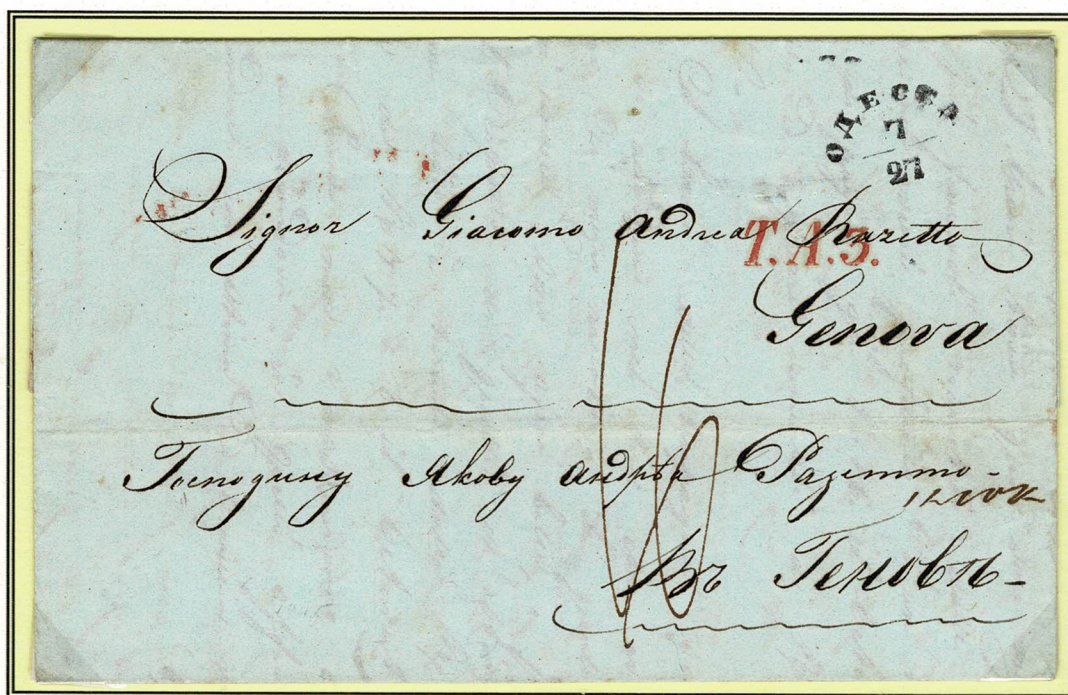 ОДЕССА
7
27
Signor Giacomo Andrea Razetto
T.A.3.
Genova
Господину Якову Андрѣа Разетто-
Въ Геновѣ-